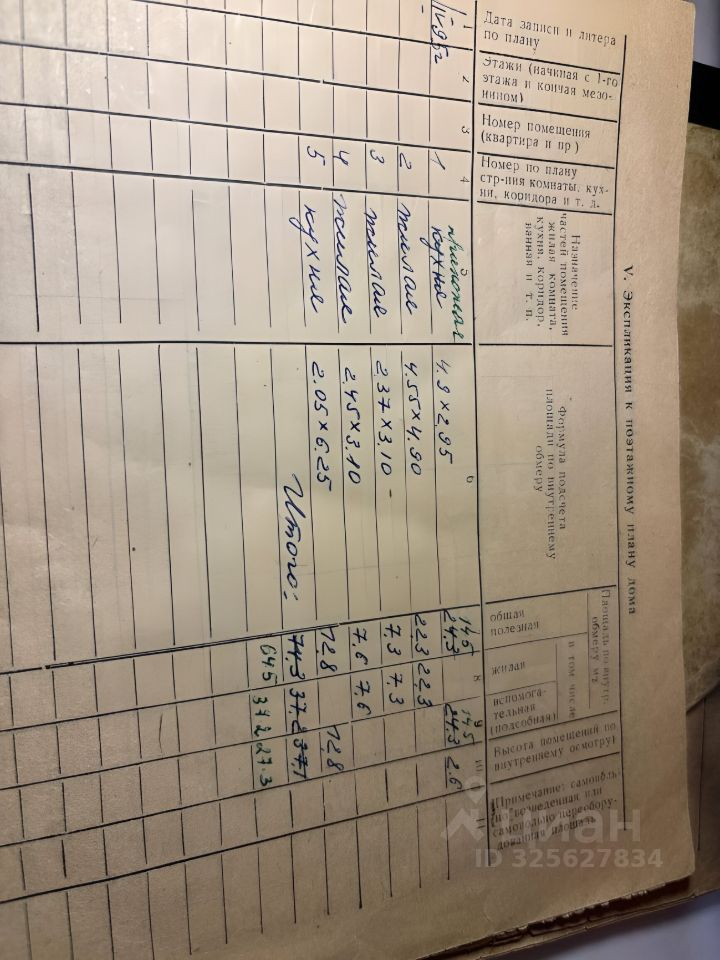 V. Экспликация к поэтажному плану дома
Дата записи и литера по плану
Этажи (начиная с 1-го этажа и кончая мезонином)
Номер помещения (квартира и пр)
Номер по плану стр-ния комнаты, кухни, коридора и т. д.
Назначение частей помещения жилая комната, кухня, коридор, ванная и т. п.
Формула подсчета площади по внутреннему обмеру
Площадь по внутр. обмеру м2
общая полезная
в том числе
жилая
вспомогательная (подсобная)
Высота помещений по внутреннему осмотру)
(Примечание: самовольно возведенная или самовольно переоборудованная площадь
1 2 3 4 6 8 9 10 11
95г
прихожая
1 кухня 4.9×2.95 24,3 24.3 2.6
14.5 14.5
2 жилая 4.55×4.90 22,3 22,3
3 жилая 2.37×3.10 7,3 7,3
4 жилая 2.45×3.10 7,6 7,6
5 кухня 2.05×6.25 12.8 12.8
Итого: 74,3 37.2 37,1
64.5 37.2 27.3
циан
ID 325627834